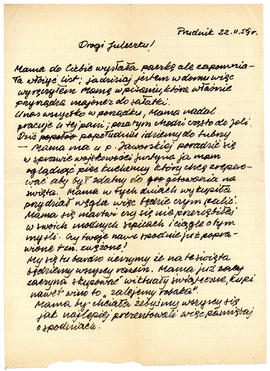 Prudnik 22.11.59r.
Drogi Juleczku!
Mama do Ciebie wysłała paczkę ale zapomnia-
ła włożyć list; ja dzisiaj jestem w domu więc
wyręczyłem Mamę w pisaniu, która właśnie
przyrządza majonez do sałatki.
U nas wszystko w porządku, Mama nadal
pracuje u tej pani; poza tym chodzi często do
Dziś popołudniu idziemy do Lubrzy
– Mama ma u p. Jaworskiej poradzić się
w sprawie wojskowości Justyna ja mam
oglądnąć piec kuchenny który chcę zrepero-
wać aby był zdatny do gotowania na
święta. Mama w tych dniach wykupiła
przydział węgla więc będzie czym palić.
Mama się martwi czy się nie przeziębiłeś
w swoich modnych szpicach i ciągle o tym
myśli. Czy twoje nowe spodnie już popra-
wione tzn. zwężone!
My się tu bardzo cieszymy że na te święta
będziemy wszyscy razem. Mama już zaczy-
zaczyna skupować wiktuały świąteczne, kupi
nawet wino to
Mama by chciała żebyśmy wszyscy się
jak najlepiej prezentowali więc pamiętaj
o spodniach.